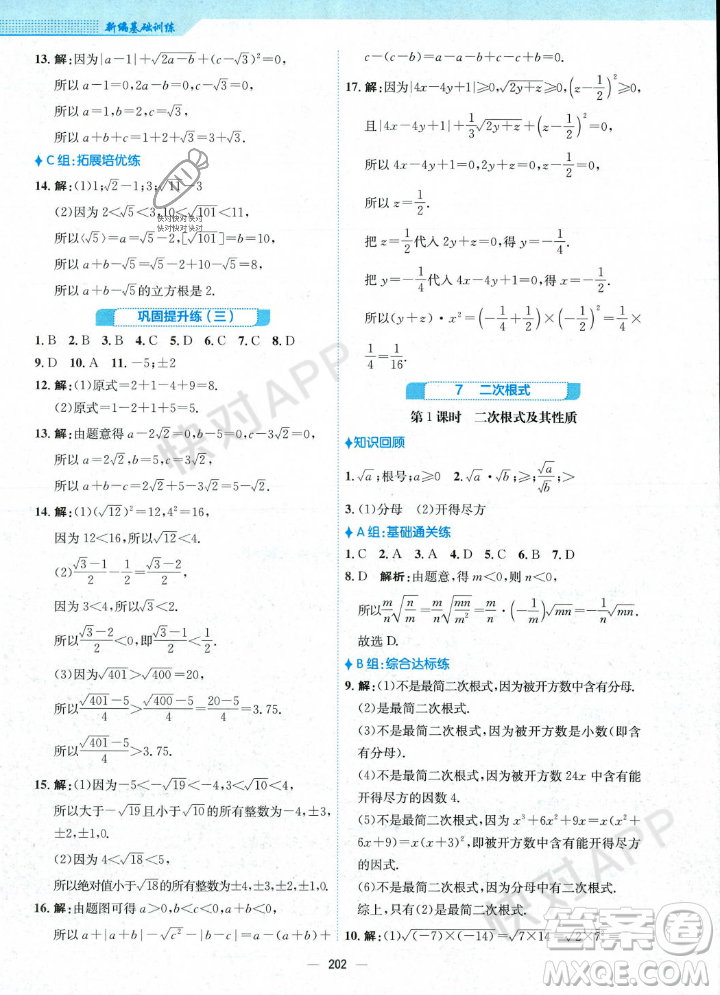 新编基础训练
13. 解:因为|a−1|+√(2a−b)+(c−√3)²=0,
所以 a=1,b=2,c=√3,
所以 a+b+c=1+2+√3=3+√3.
C组:拓展培优练
14. 解:(1)1;√2−1;3;√11−3
(2)因为 2<√5<3,10<√101<11,
所以(√5)=a=√5−2,[√101]=b=10,
所以 a+b−√5=√5−2+10−√5=8,
所以 a+b−√5的立方根是2.
巩固提升练(三)
1. B 2. B 3. B 4. B 5. B 6. C 7. C 8. D
9. D 10. A 11. −5;±2
12. 解:(1)原式=2+1−4+9=8.
(2)原式=2−1+1=2.
13. 解:由题意得 a−2√2=0,b−2√2=0,
所以 a=2√2,b=2√2,
所以 a−b=2√2−2√2=0.
14. 解:(1)(√12)²=12,4²=16,
因为 12<16,所以√12<4.
(2)(√3−1)/2−1/2=(√3−2)/2.
因为 3<4,所以√3<2.
所以(√3−2)/2<0,即(√3−1)/2<1/2.
(3)因为√401>√400=20,
所以(√401−5)/4>(√400−5)/4=(20−5)/4=3.75.
所以(√401−5)/4>3.75.
15. 解:(1)因为−5<−√19<−4,√15<4,
所以大于−√19且小于√15的所有整数为−4,±3,
±2,±1,0.
(2)因为4=√16<√18<√25=5,
所以绝对值小于√18的所有整数为±4,±3,±2,±1,0.
16. 解:由题图可得 a>0,b<0,c<0,a+b<0,
所以 a+|a+b|−√c²−|b−c|=a−(a+b)+
c−(c−b)=0.
17. 解:因为|4x−4y+1|≥0,√(2y+z)≥0,(z−1/2)²≥0,
且|4x−4y+1|+1/3√(2y+z)+(z−1/2)²=0,
所以 z−1/2=0,2y+z=0,4x−4y+1=0,
所以 z=1/2.
把 z=1/2代入 2y+z=0,得 y=−1/4.
把 y=−1/4代入 4x−4y+1=0,得 x=−1/2.
所以(y+z)·x²=(−1/4+1/2)×(−1/2)²=1/4×
1/4=1/16.
7 二次根式
第1课时 二次根式及其性质
知识回顾
1. √a;根号;a≥0 2. √a·√b;≥;≥;√a/√b;≥;>
3. (1)分母 (2)开得尽方
A组:基础通关练
1. C 2. A 3. C 4. D 5. A 6. B 7. D
8. D 解析:由题意,得 m<0,则 n<0,
所以m/n√(n/m)=m/n√(mn/m²)=m/n·(−1/m)√mn=−1/n√mn.
故选D.
B组:综合达标练
9. 解:(1)不是最简二次根式,因为被开方数中含有分母.
(2)是最简二次根式.
(3)不是最简二次根式,因为被开方数是小数(即含有分母).
(4)不是最简二次根式,因为被开方数24x中含有能开得尽方的因数4.
(5)不是最简二次根式,因为x³+6x²+9x=x(x²+
6x+9)=x(x+3)²,即被开方数中含有能开得尽方的因式.
(6)不是最简二次根式,因为分母中有二次根式.
综上,只有(2)是最简二次根式.
10. 解:(1)√((−7)×(−14))=√(7×14)=√(2×7²)=
202
快对APP
快对APP
快对APP
答案